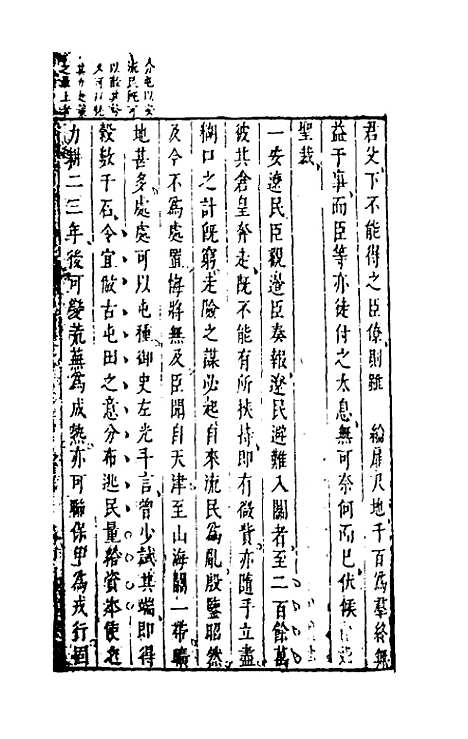 君父下不能得之臣僚則雖 綸扉及地千百為羣終無
益于事而臣等亦徒付之太息無可奈何而已伏候
聖裁
一安遼民臣觀邊臣奏報遼民避難入關者至二百餘萬
彼其倉皇奔走既不能有所扶持即有微貲亦隨手立盡
餬口之計既窮走險之謀必起自來流民為亂殷鑒昭然
及今不為處置悔將無及臣聞自天津至山海關一帶曠
地甚多處處可以屯種御史左光斗言曾少試其端即得
穀數千石今宜倣古屯田之意分布逃民量給資本使之
力耕二三年後可變荒蕪為成熟亦可聯保甲為戎行固
流民既可
以散其